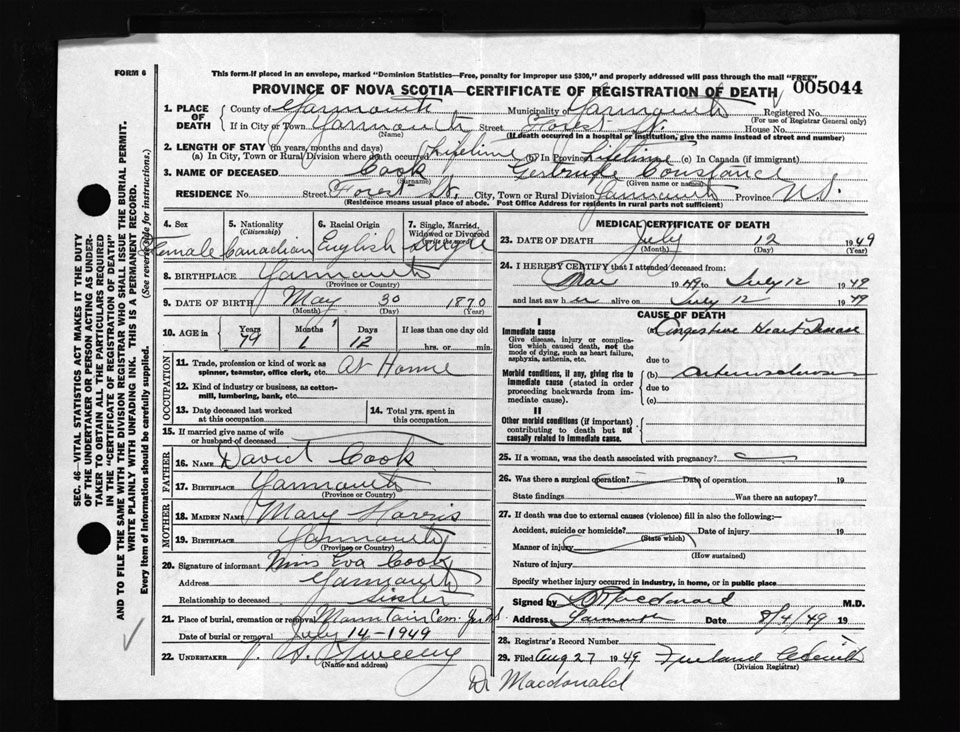 FORM 6
This form if placed in an envelope, marked "Dominion Statistics—Free, penalty for improper use $300," and properly addressed will pass through the mail "FREE"
PROVINCE OF NOVA SCOTIA—CERTIFICATE OF REGISTRATION OF DEATH 005044
1. PLACE OF DEATH County of Yarmouth Municipality of Yarmouth Registered No.
(For use of Registrar General only)
If in City or Town Yarmouth Street Forest St. House No.
(Name) (If death occurred in a hospital or institution, give the name instead of street and number)
2. LENGTH OF STAY (in years, months and days)
(a) In City, Town or Rural Division where death occurred Lifetime (b) In Province Lifetime (c) In Canada (if immigrant)
3. NAME OF DECEASED Cook Gertrude Constance
(Surname) (Given name or names)
RESIDENCE No. Street Forest St. City, Town or Rural Division Yarmouth Province N.S.
(Residence means usual place of abode. Post Office Address for residents in rural parts not sufficient)
4. Sex Female
5. Nationality (Citizenship) Canadian
6. Racial Origin English
7. Single, Married, Widowed or Divorced (Write the word) Single
8. BIRTHPLACE Yarmouth
(Province or Country)
9. DATE OF BIRTH May 30 1870
(Month) (Day) (Year)
10. AGE in Years 79 Months 1 Days 12 If less than one day old hrs. or min.
OCCUPATION
11. Trade, profession or kind of work as spinner, teamster, office clerk, etc. At Home
12. Kind of industry or business, as cotton-mill, lumbering, bank, etc.
13. Date deceased last worked at this occupation
14. Total yrs. spent in this occupation
15. If married give name of wife or husband of deceased
FATHER
16. NAME David Cook
17. BIRTHPLACE Yarmouth
(Province or Country)
MOTHER
18. MAIDEN NAME Mary Harris
19. BIRTHPLACE Yarmouth
(Province or Country)
20. Signature of informant Miss Eva Cook
Address Yarmouth
Relationship to deceased Sister
21. Place of burial, cremation or removal Mountain Cem.
Date of burial or removal July 14-1949
22. UNDERTAKER Sweeny
(Name and address)
MEDICAL CERTIFICATE OF DEATH
23. DATE OF DEATH July 12 1949
(Month) (Day) (Year)
24. I HEREBY CERTIFY that I attended deceased from:
Mar 1949 to July 12 1949
and last saw h er alive on July 12 1949
CAUSE OF DEATH
I
Immediate cause
Give disease, injury or complication which caused death, not the mode of dying, such as heart failure, asphyxia, asthenia, etc.
(a) Congestive Heart Disease
due to
Morbid conditions, if any, giving rise to immediate cause (stated in order proceeding backwards from immediate cause).
(b) Arteriosclerosis
due to
(c)
II
Other morbid conditions (if important) contributing to death but not causally related to immediate cause.
25. If a woman, was the death associated with pregnancy?
26. Was there a surgical operation? Date of operation 19
State findings Was there an autopsy?
27. If death was due to external causes (violence) fill in also the following:—
Accident, suicide or homicide? Date of injury 19
(State which)
Manner of injury
(How sustained)
Nature of injury
Specify whether injury occurred in industry, in home, or in public place
Signed by Macdonald M.D.
Address Yarmouth Date 8/4/49 19
28. Registrar's Record Number
29. Filed Aug 27 1949
(Division Registrar)
Dr Macdonald
SEC. 46—VITAL STATISTICS ACT MAKES IT THE DUTY
OF THE UNDERTAKER OR PERSON ACTING AS UNDER-
TAKER TO OBTAIN ALL THE PARTICULARS REQUIRED
IN THE "CERTIFICATE OF REGISTRATION OF DEATH"
AND TO FILE THE SAME WITH THE DIVISION REGISTRAR WHO SHALL ISSUE THE BURIAL PERMIT.
WRITE PLAINLY WITH UNFADING INK. THIS IS A PERMANENT RECORD.
Every item of information should be carefully supplied. (See reverse side for instructions.)